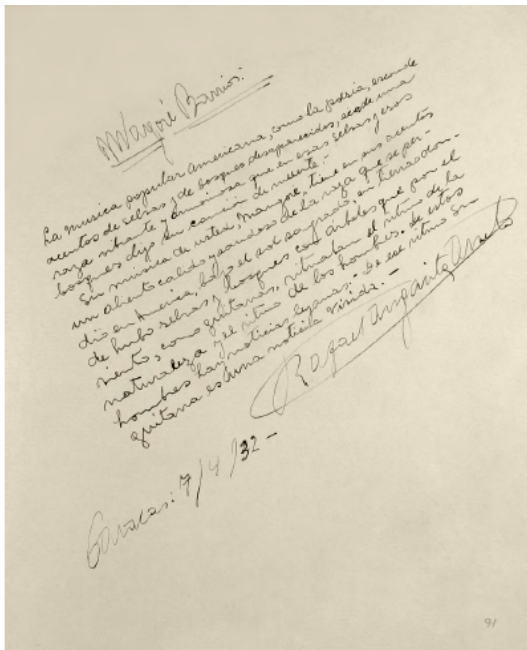 A Mangoré Barrios:
La musica popular americana, como la poesia, esconde
acentos de selvas y de bosques desaparecidos, acentos de una
raza vibrante y armoniosa que en esas selvas y esos
bosques dijo su canción de muerte.-
Su música de usted, Mangoré, tiene en sus acentos
un aliento calido y ansioso de la raza que se per-
dió en America, bajo el sol sagrado, en tierras don-
de hubo selvas y bosques con árboles que por el
viento, como guitarras, ritmaban el ritmo de la
naturaleza y el ritmo de los hombres. De estos
hombres hay noticias lejanas.- De ese ritmo su
guitarra es una noticia vivida.-
Rafael Angarita Arvelo
Caracas: 7/4/32-
91